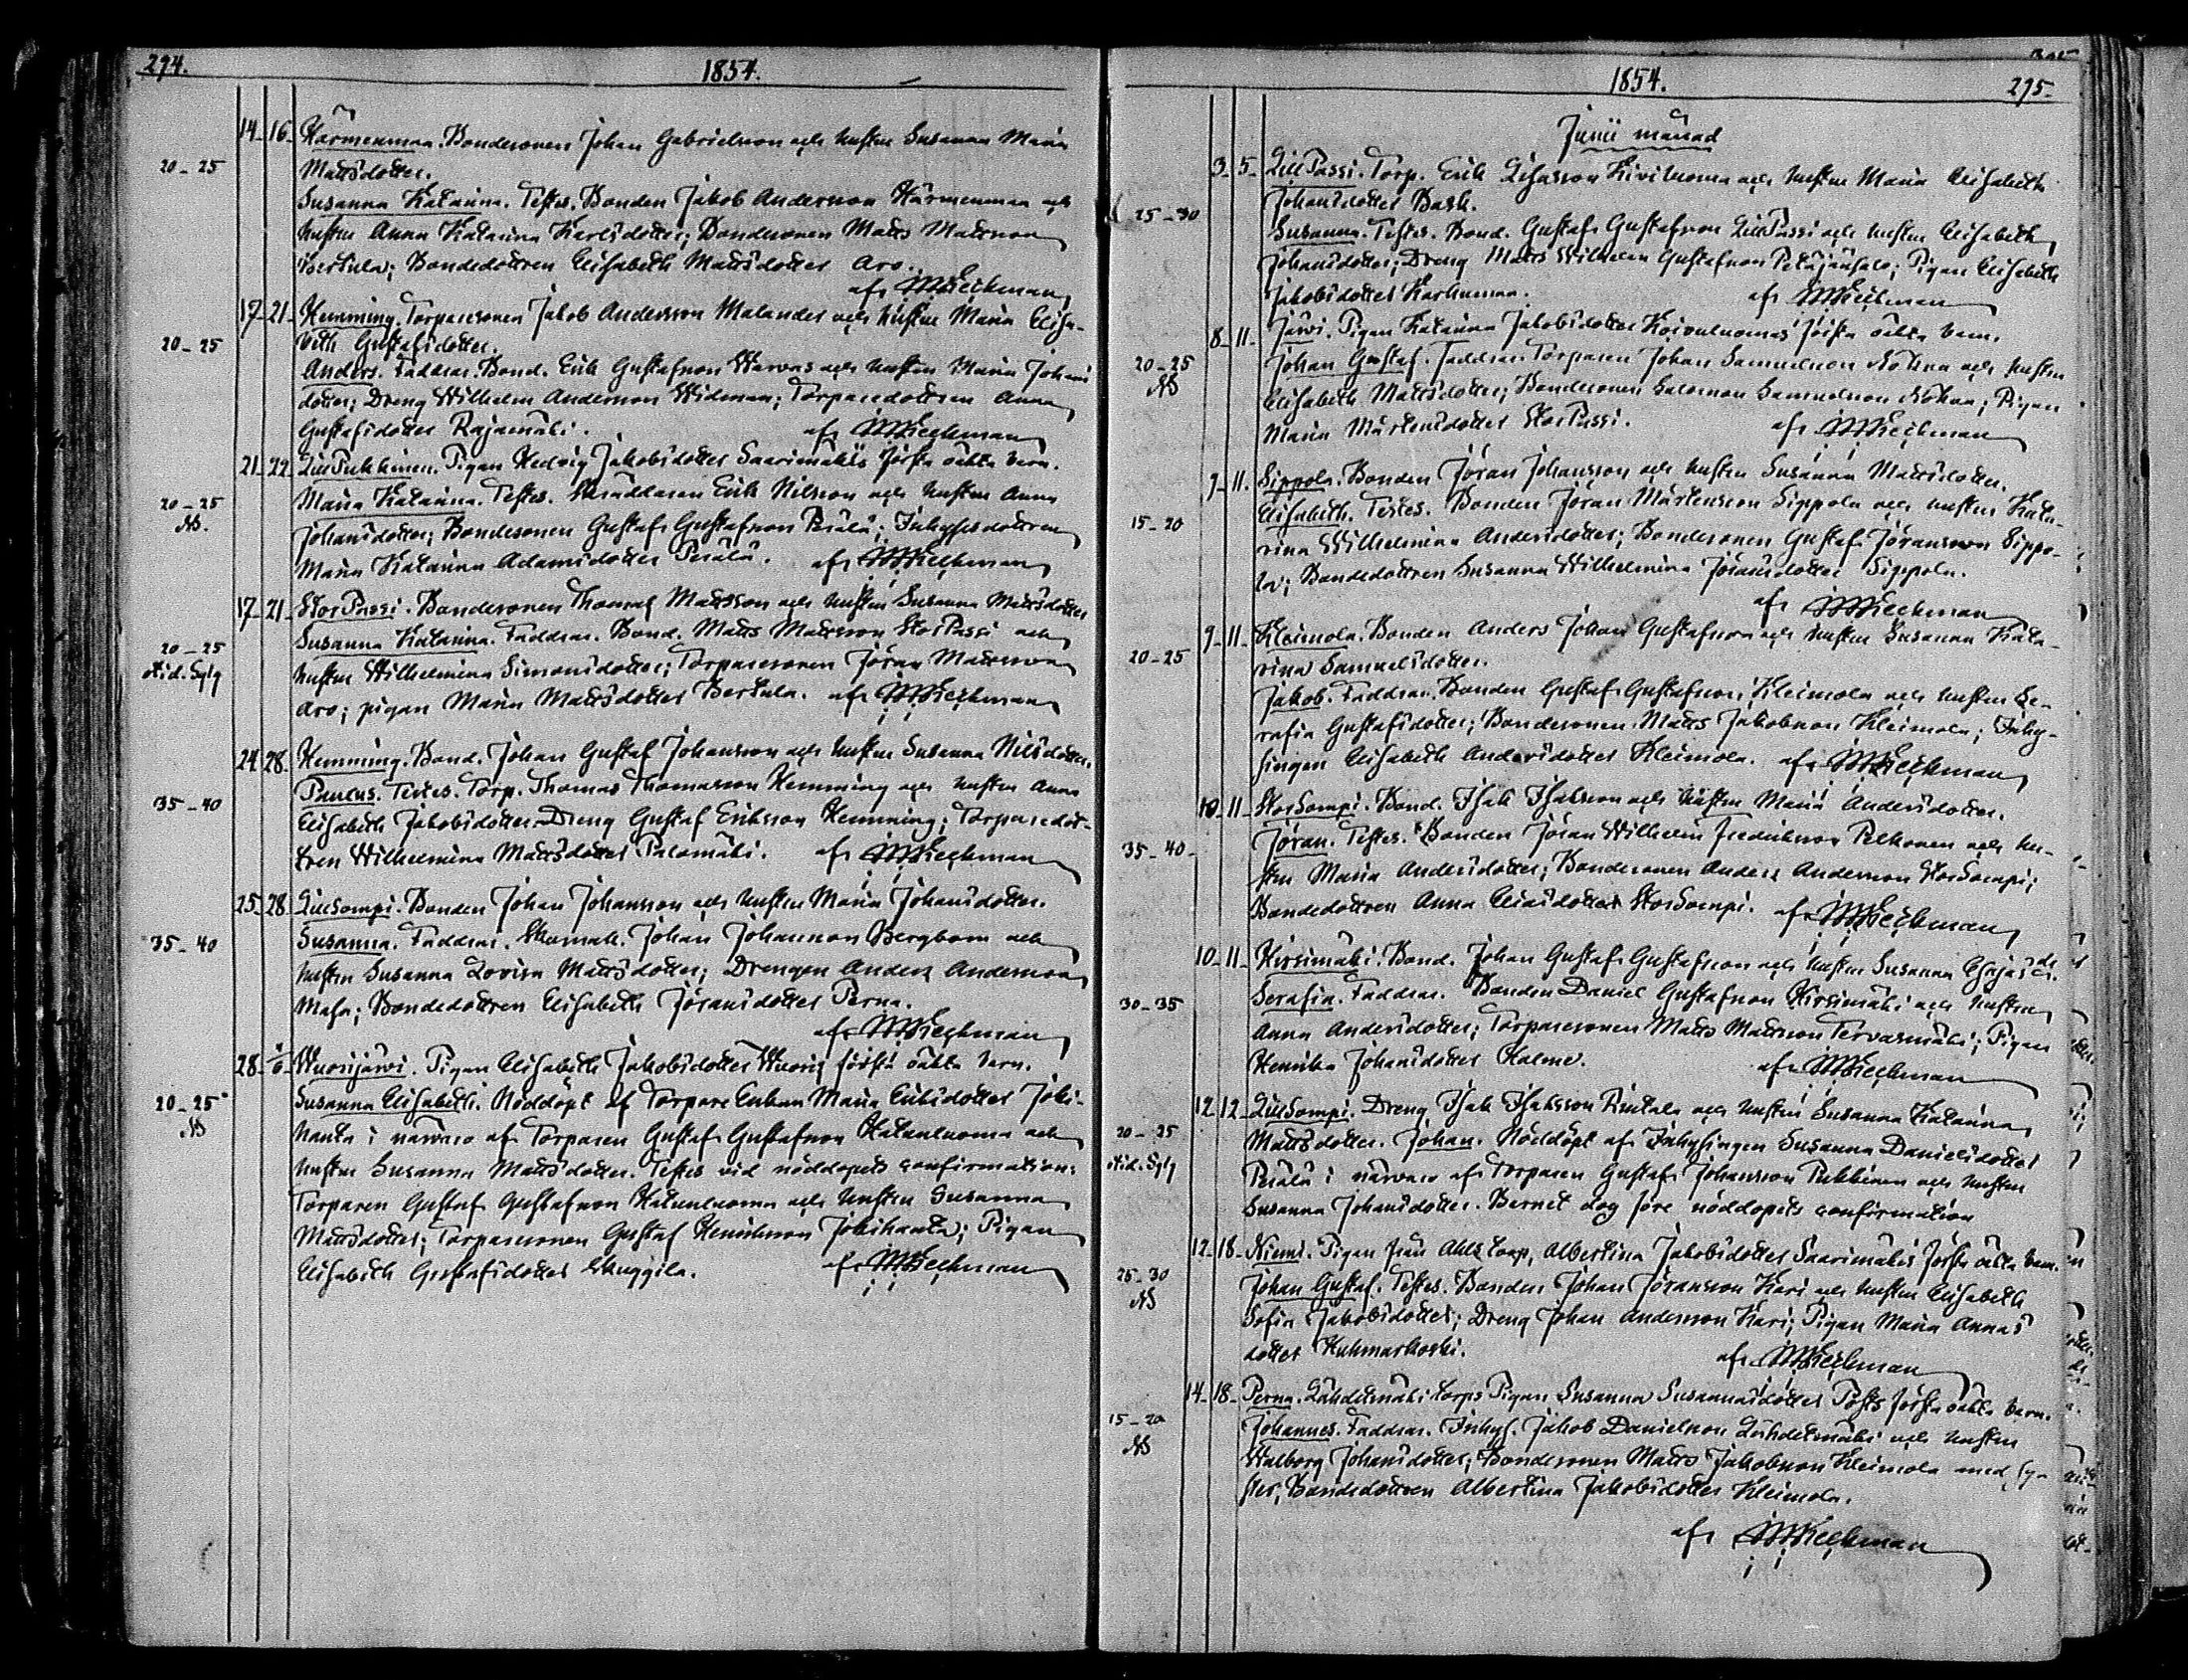 294.
1854.
14-16- Härmenmaa. Bondesonen Johan Gabrielsson och hustru Susanna Maria
20-25
Mattsdotter.
Susanna Katarina. Testes. Bonden Jakob Andersson Härmenmaa och
hustru Anna Katarina Karlsdotter; Bondesonen Matts Mattsson
Bertula; Bondedottren Elisabeth Mattsdotter Aro.
af
17-21- Hemming. Torparesonen Jakob Andersson Malander och hustru Maria Elisa-
20-25
beth Gustafsdotter.
Anders. Faddrar. Bond. Erik Gustafsson Warvas och hustru Maria Johans
dotter; Dreng Wilhelm Andersson Widman; Torparedottren Anna
Gustafsdotter Rajamäki. af
21-22- LillPukkinen. Pigan Hedvig Jakobsdotter Saarimäkis första oäkta barn.
20-25
NB.
Maria Katarina. Testes. Skräddaren Erik Nilsson och hustru Anna
Johansdotter; Bondesonen Gustaf Gustafsson Perälä; Inhysesdottren
Maria Katarina Adamsdotter Perälä. af
17-21- StorPassi. Bondesonen Thomas Mattsson och hustru Susanna Mattsdotter
20-25
Susanna Katarina. Faddrar. Bond. Matts Mattsson StorPassi och
hustru Wilhelmina Simonsdotter; Torparesonen Jöran Mattsson
Aro; pigan Maria Mattsdotter Bertula. af
24-28- Hemming. Bond. Johan Gustaf Johansson och hustru Susanna Nilsdotter.
35-40
Paulus. Testes. Torp. Thomas Thomasson Hemming och hustru Anna
Elisabeth Jakobsdotter. Dreng Gustaf Eriksson Hemming; Torparedot-
tren Wilhelmina Mattsdotter Palomäki. af
25-28 LillSompi. Bonden Johan Johansson och hustru Maria Johansdotter.
35-40
Susanna. Faddrar. Skomak. Johan Johansson Bergbom och
hustru Susanna Lovisa Mattsdotter; Drengen Anders Andersson
Bondedottren Elisabeth Jöransdotter Perna.
af
28- Wuorijärvi. Pigan Elisabeth Jakobsdotter första oäkta barn.
20-25
NB
Susanna Elisabeth. Nöddöpt af Torpare Enkan Maria Eriksdotter Joki-
hanka i närvaro af Torparen Gustaf Gustafsson och
hustru Susanna Mattsdotter. Testes vid nöddopets confirmation:
Torparen Gustaf Gustafsson och hustru Susanna
Mattsdotter; Torparesonen Gustaf Henriksson Jokihanka; Pigan
Elisabeth Gustafsdotter Skyggila. af
1854.
295.
Junii månad
3-5- LillPassi. Torp. Erik Kiviluoma och hustru Maria Elisabeth
25-30
Johansdotter Bask.
Susanna. Testes. Bond. Gustaf Gustafsson LillPassi och hustru Elisabeth
Johansdotter; Dreng Matts Wilhelm Gustafsson Petäjäsalo; Pigan Elisabeth
Jakobsdotter Karhumaa. af
8-11- Järvi. Pigan Katarina Jakobsdotter Koivuluomas första oäkta barn.
20-25
NB
Johan Gustaf. Faddrar. Torparen Johan Samuelsson och hustru
Elisabeth Mattsdotter; Bondesonen Salomon Samuelsson; Pigan
Maria Mårtensdotter StorPassi. af
9-11. Sippola. Bonden Jöran Johansson och hustru Susanna Mattsdotter.
15-20
Elisabeth. Testes. Bonden Jöran Mårtensson Sippola och hustru Kata-
rina Wilhelmina Andersdotter; Bondesonen Gustaf Jöransson Sippo-
la; Bondedottren Susanna Wilhelmina Jöransdotter Sippola.
af
9-11- Kleimola. Bonden Anders Johan Gustafsson och hustru Susanna Kata-
20-25
rina Samuelsdotter.
Jakob. Faddrar. Bonden Gustaf Gustafsson Kleimola och hustru Se-
rafia Gustafsdotter; Bondesonen Matts Jakobsson Kleimola; Inhy-
singen Elisabeth Andersdotter Kleimola. af
10-11- StorSompi. Bond. Isak Isaksson och hustru Maria Andersdotter.
35-40-
Jöran. Testes. Bonden Jöran Wilhelm Fredriksson Pelkonen och hu-
stru Maria Andersdotter; Bondesonen Anders Andersson StorSompi;
Bondedottren Anna Eliasdotter StorSompi. af
10-11- Hirsimäki. Bond. Johan Gustaf Gustafsson och hustru Susanna
30-35
Serafia. Faddrar. Bonden Daniel Gustafsson Hirsimäki och hustru
Anna Andersdotter; Torparesonen Matts Mattsson Tervasmäki; Pigan
Henrika Johansdotter Halme. af
12-12- LillSompi. Dreng Isak Isaksson Rintala och hustru Susanna Katarina
20-25
Mattsdotter. Johan. Nöddöpt af Inhysingen Susanna Danielsdotter
Perälä i närvaro af Torparen Gustaf Johansson Pukkinen och hustru
Susanna Johansdotter. Barnet dog före nöddopets confirmation
12-18- Niemi. Pigan från Ahls torp, Albertina Jakobsdotter Saarimäkis första oäkta barn.
25-30
NB
Johan Gustaf. Testes. Bonden Johan Jöransson Kari och hustru Elisabeth
Sofia Jakobsdotter; Dreng Johan Andersson Kari; Pigan Maria Annas
dotter Kuhmarkoski. af
14-18- Perna. Lähdetmäki torps Pigan Susanna Susannasdotter första oäkta barn.
15-20
NB
Johannes. Faddrar. Inhys. Jakob Danielsson Lähdetmäki och hustru
Walborg Johansdotter; Bondesonen Matts Jakobsson Kleimola med sy-
ster, Bondedottren Albertina Jakobsdotter Kleimola.
af